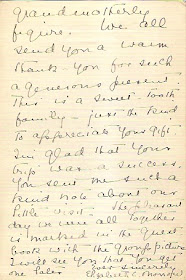 grandmotherly
figure. We all
send you a warm
thank you for such
a generous present.
This is a sweet tooth
family - just the kind
to appreciate your gift.
I'm glad that your
trip was a success.
You sent me such a
kind note about our
little visit. The pleasant
day we were all together
is marked in the guest
book with the group picture
I will see that you get
one later. Ever sincerely
Elizabeth